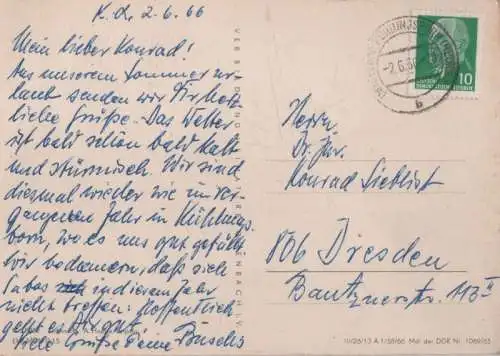 K. d. 2.6.66
Mein lieber Konrad!
Aus unserem Sommerur-
laub senden wir Dir herz-
liche Grüße. Das Wetter
ist bald schön bald kalt
und stürmisch. Wir sind
diesmal wieder wie im ver-
gangenen Jahr in Kühlungs
born, wo es uns gut gefällt
Wir bedauern, daß sich
in diesem Jahr
nicht treffen. Hoffentlich
geht es Dir gut.
Viele Grüße Deine
Herrn
Dr. jur.
Konrad Lieblist
806 Dresden
Bautznerstr. 113
10
-2.6.66
b
IV/26/13 A 1/58/66 Mdl der DDR Nr. 1069/65